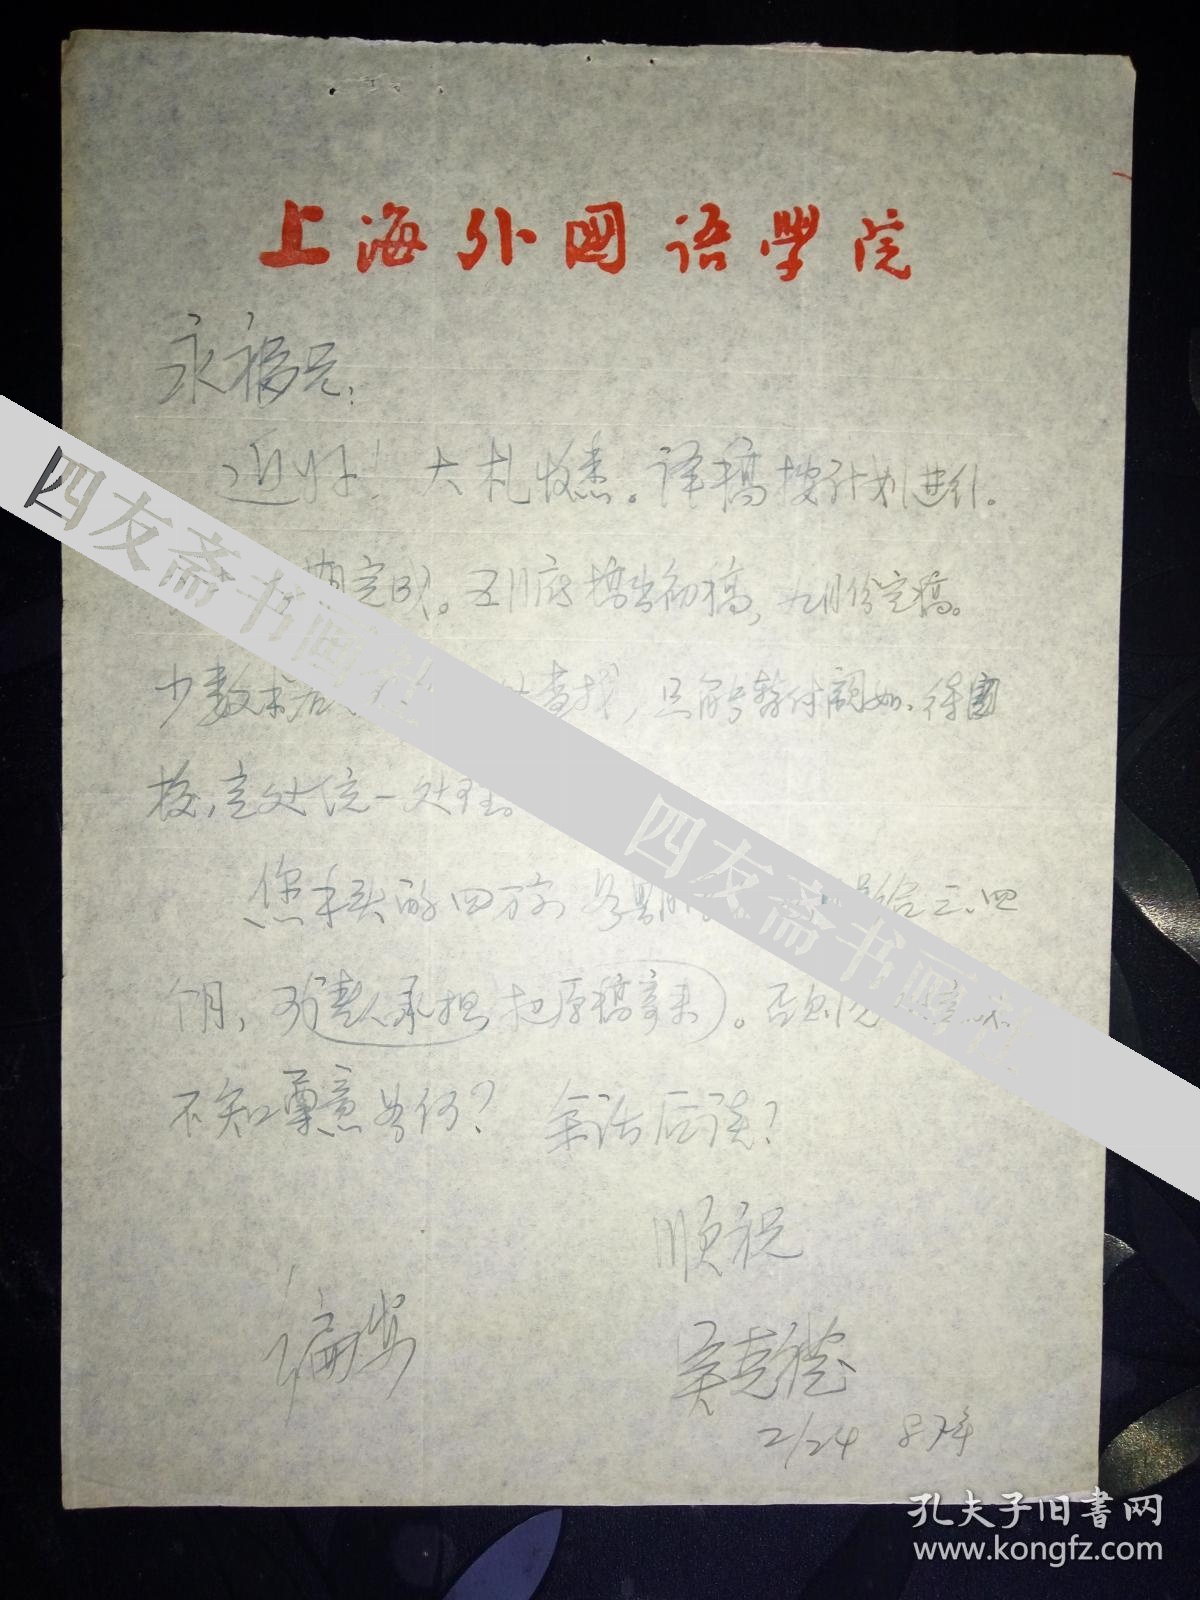 上海外国语学院
永福兄：
近好！大札收悉。译稿按计划进行。
期完成。五月底搞出初稿，九月份定稿。
少数术语 查找，只能暂付阙如，待
校、定处统一处理。
您手头的四万字 若 给三、四
个月，可请人承担（把原稿寄来）。否则
不知尊意如何？余话后谈？
顺祝
编安
吴克礼
2/24 87年
四友斋书画社
四友斋书画社
孔夫子旧书网
www.kongfz.com